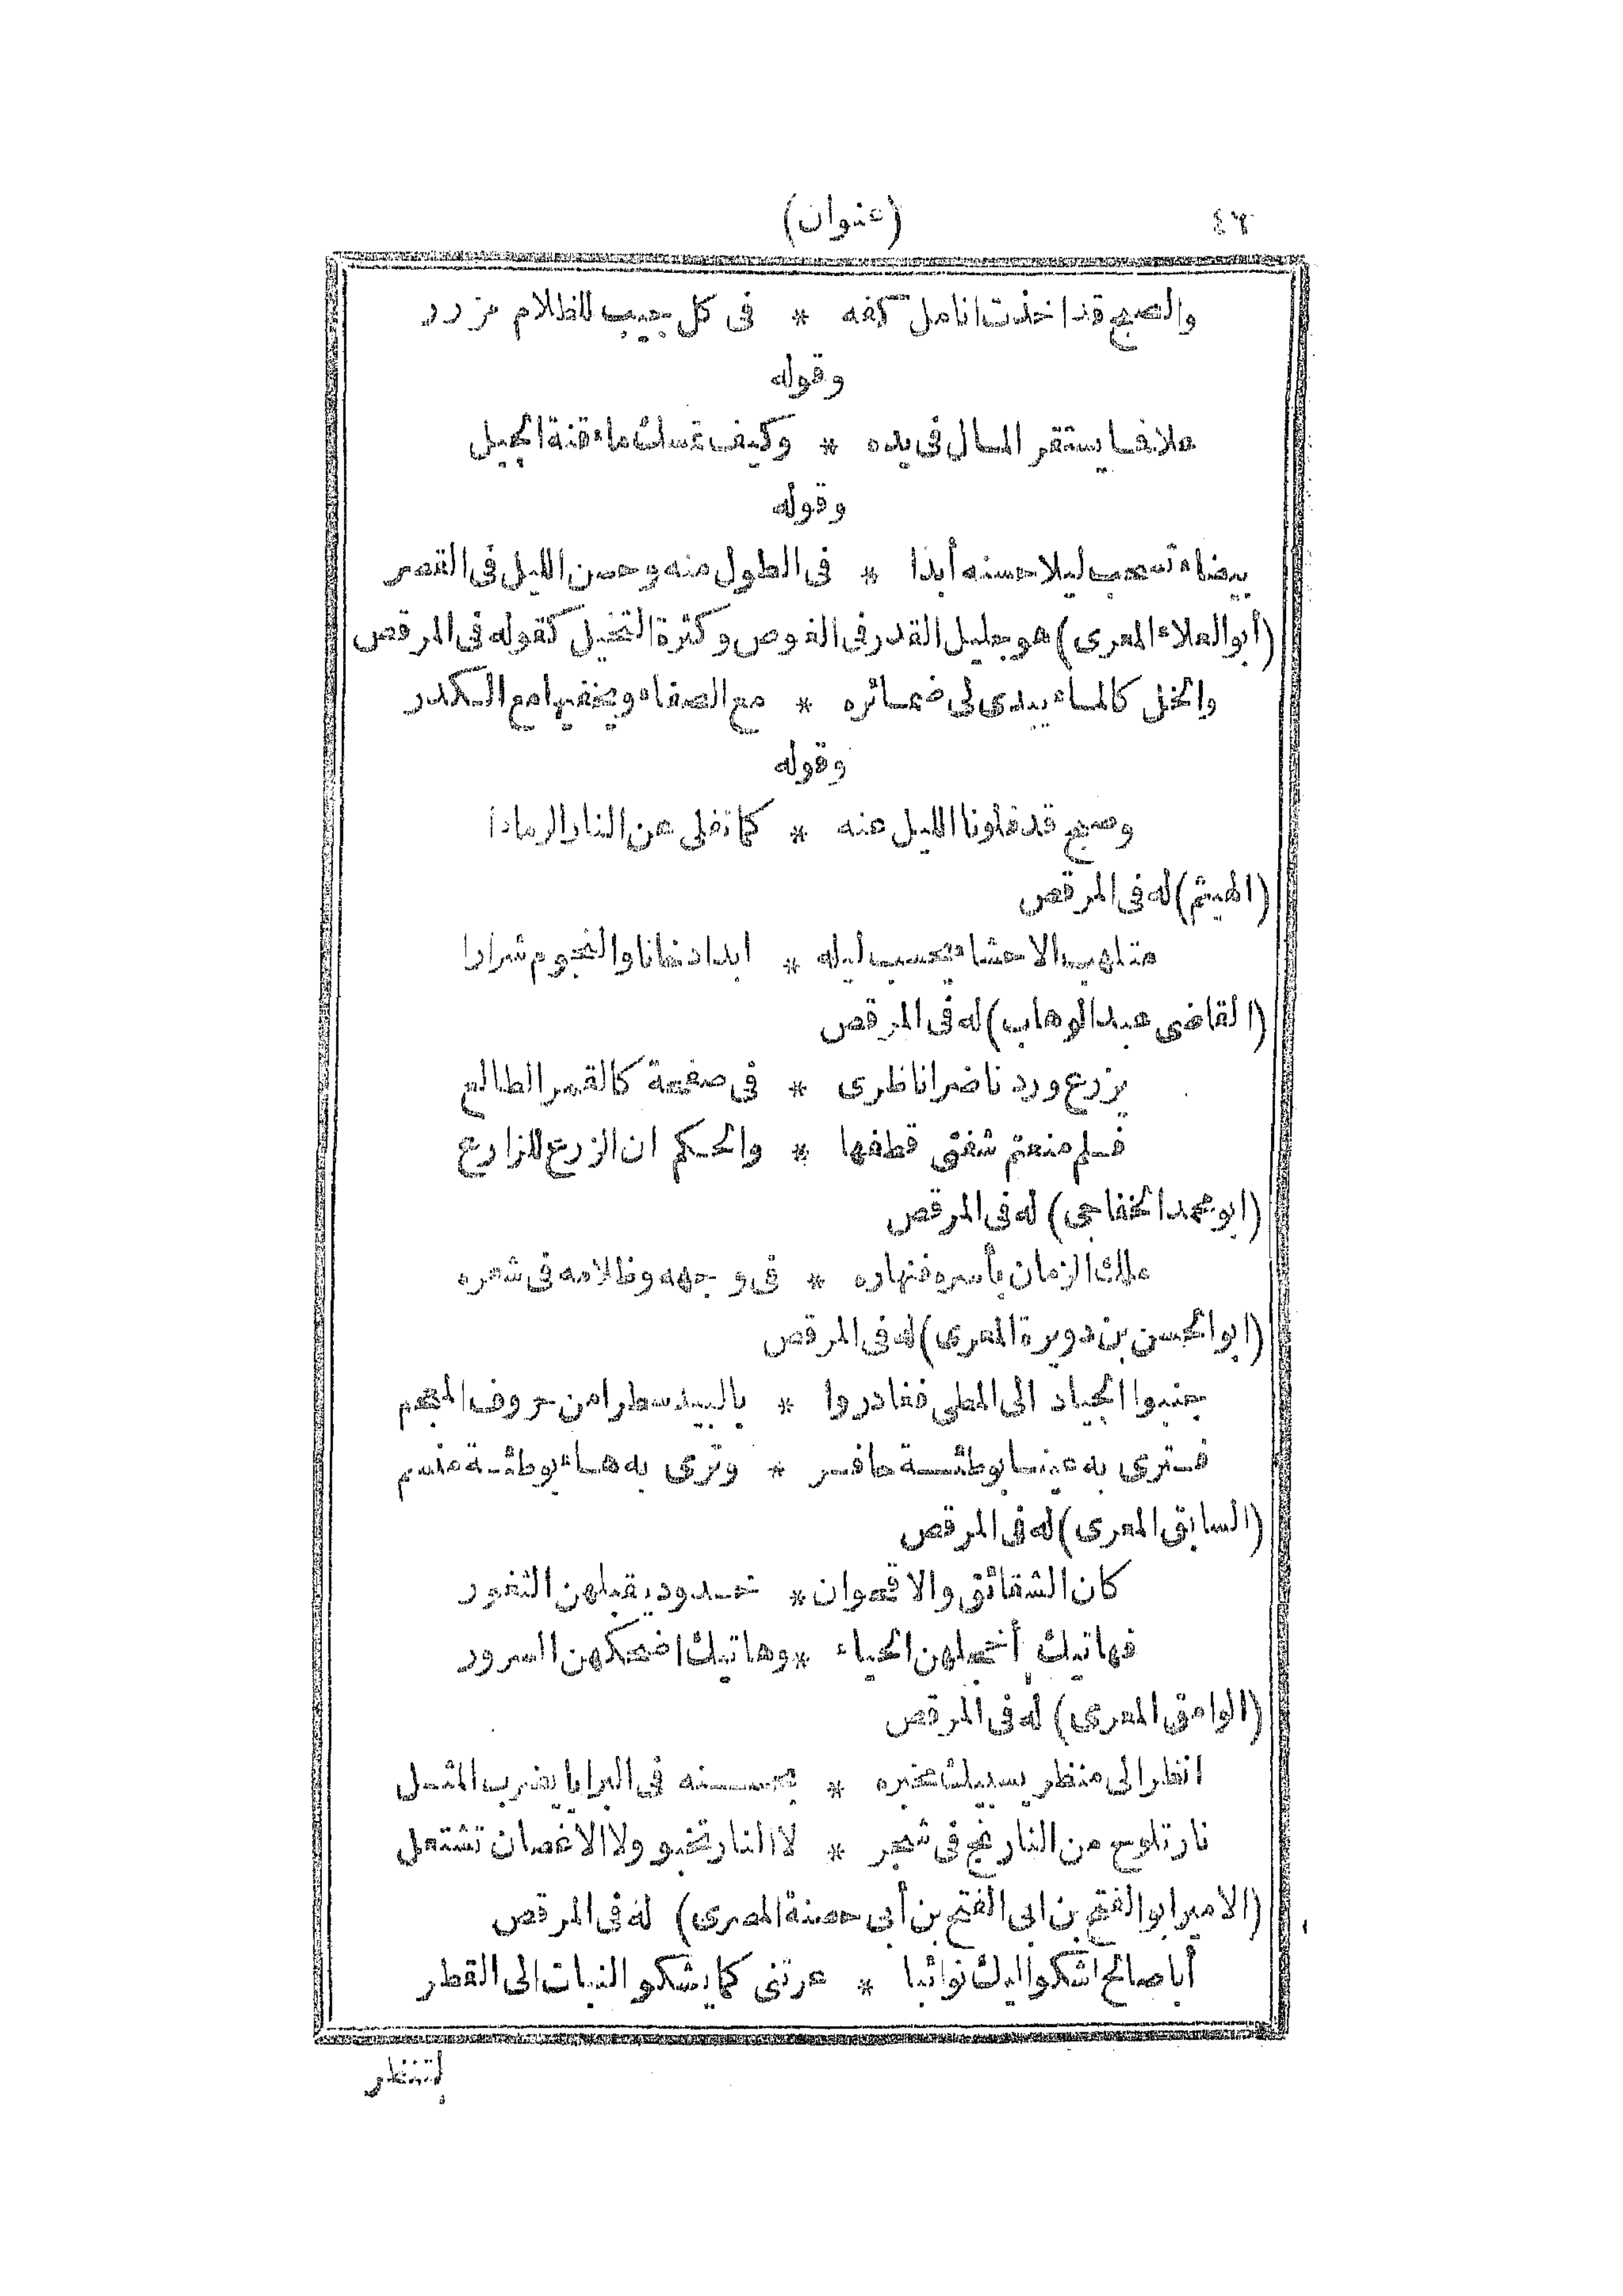 (عنوان)
والصبح قد اخذت انامل كفه * فى كل جيب للظلام مزرر
وقوله
علا فما يستقر المال فى يده * وكيف تمسك ماء قنة الجبل
وقوله
بيضاء تسحب ليلا حسنه أبدا * فى الطول منه وحسن الليل فى القصر
(أبو العلاء المعرى) هو جليل القدر فى الغوص وكثرة التخيل كقوله فى المرقص
والخل كالماء يبدى لى ضمائره * مع الصفاء ويخفيها مع الكدر
وقوله
وصبح قد فلونا الليل عنه * كما تفلى عن النار الرمادا
(الهيثم) له فى المرقص
متلهب الاحشاء يحسب ليله * ابدا دخانا والنجوم شرارا
(القاضى عبد الوهاب) له فى المرقص
يزرع ورد ناضرا ناظرى * فى صفحة كالقمر الطالع
فلم منعتم شفتى قطفها * والحكم ان الزرع للزارع
(ابو محمد الخفاجى) له فى المرقص
ملك الزمان بأسره فنهاره * فى وجهه وظلامه فى شعره
(ابو الحسن بن دويرة المعرى) له فى المرقص
جنبوا الجياد الى المطى فغادروا * بالبيد سطرا من حروف المعجم
فترى به عينا بوطئة حافر * وترى به هاء بوطئة منسم
(السابق المعرى) له فى المرقص
كان الشقائق والاقحوان * خدود يقبلهن الثغور
فهاتيك أخجلهن الحياء * وهاتيك اضحكهن السرور
(الوامق المعرى) له فى المرقص
انظر الى منظر يسبيك مخبره * بحسنه فى البرايا يضرب المثل
نار تلوح من النارنج فى شجر * لا النار تخبو ولا الاغصان تشتعل
(الامير ابو الفتح بن ابى الفتح بن أبى حصنة المصرى) له فى المرقص
أبا صالح اشكو اليك نوائبا * عرتنى كما يشكو النبات الى القطر
لتنظر